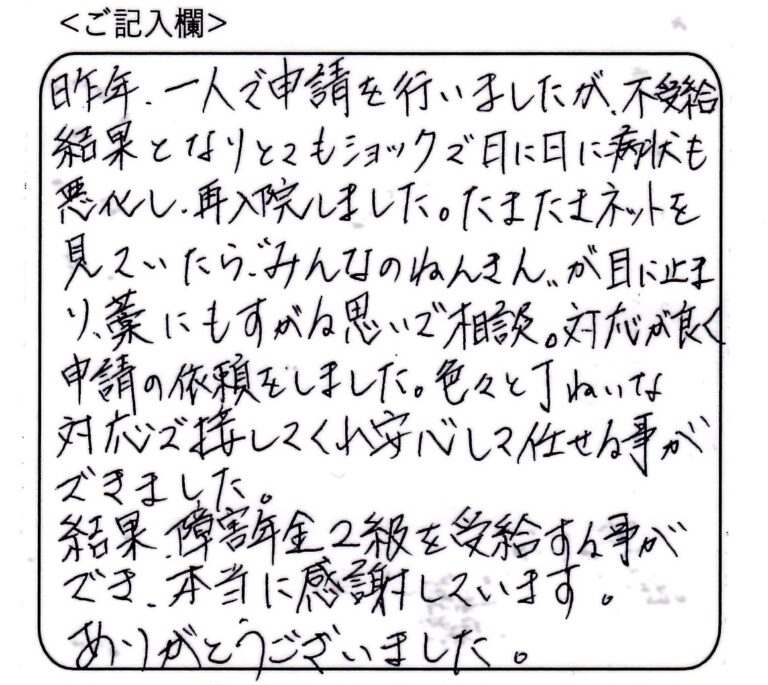 ＜ご記入欄＞
昨年、一人で申請を行いましたが、不受給
結果となりとてもショックで日に日に病状も
悪化し、再入院しました。たまたまネットを
見ていたら、“みんなのねんきん〟が目に止ま
り、藁にもすがる思いで相談。対応が良く
申請の依頼をしました。色々と丁ねいな
対応で接してくれ安心して任せる事が
できました。
結果、障害年金2級を受給する事が
でき、本当に感謝しています。
ありがとうございました。